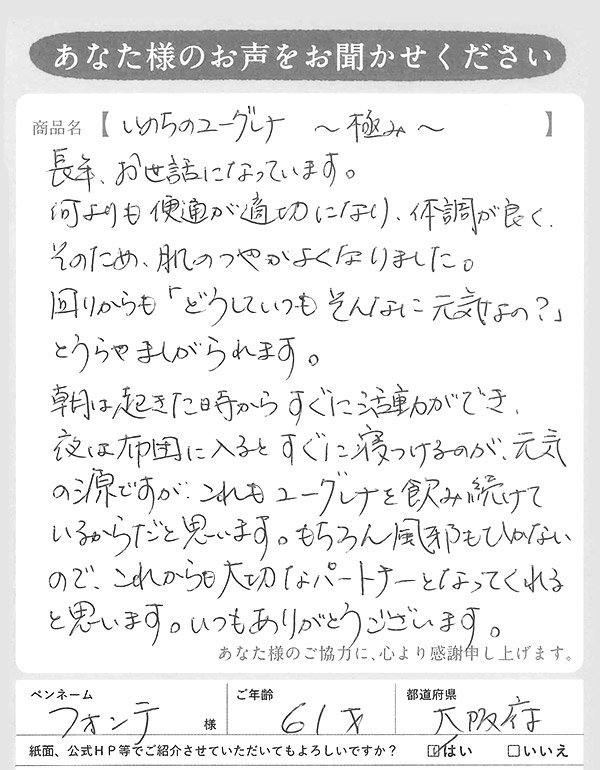 あなた様のお声をお聞かせください
商品名【いのちのユーグレナ ～極み～】
長年、お世話になっています。
何よりも便通が適切になり、体調が良く、
そのため、肌のつやがよくなりました。
回りからも「どうしていつもそんなに元気なの？」
とうらやましがられます。
朝は起きた時からすぐに活動ができ、
夜は布団に入るとすぐに寝つけるのが、元気
の源ですが、これもユーグレナを飲み続けて
いるからだと思います。もちろん風邪もひかない
ので、これからも大切なパートナーとなってくれる
と思います。いつもありがとうございます。
あなた様のご協力に、心より感謝申し上げます。
ペンネーム ご年齢 都道府県
フォンテ 様 61才 大阪府
紙面、公式HP等でご紹介させていただいてもよろしいですか？ ☑はい □いいえ